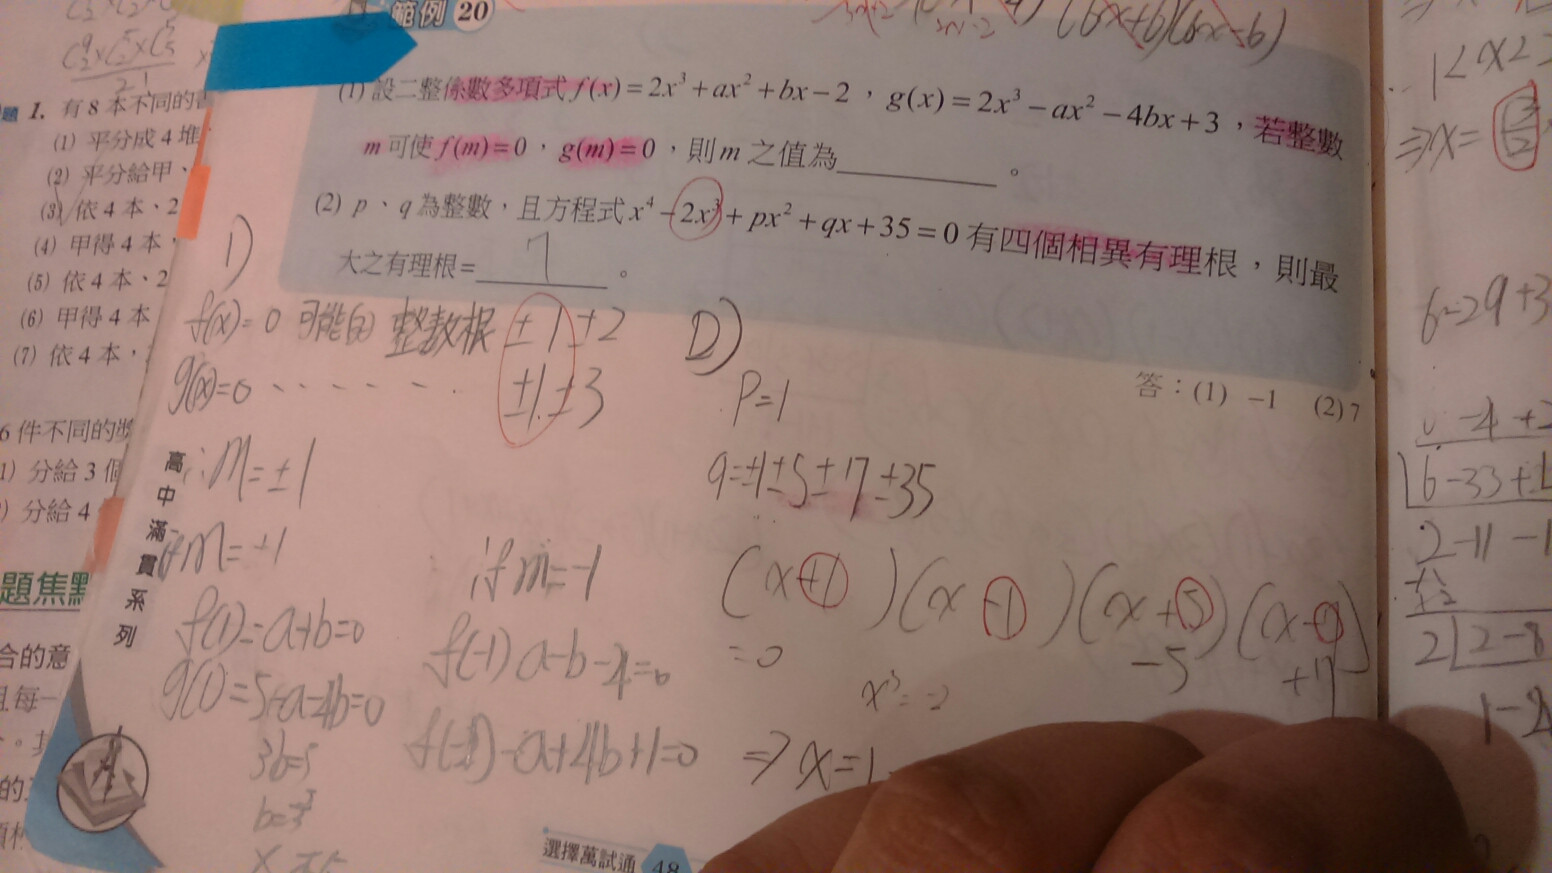 範例 20
(6x+6)(6x-6)
(1) 設二整係數多項式 f(x)=2x³+ax²+bx-2，g(x)=2x³-ax²-4bx+3，若整數
m 可使 f(m)=0，g(m)=0，則 m 之值為________。
(2) p、q 為整數，且方程式 x⁴-2x³+px²+qx+35=0 有四個相異有理根，則最
大之有理根=____7____。
答：(1) -1 (2) 7
1)
f(x)=0 可能的 整數根 ±1±2
g(x)=0 ······· ±1±3
∴m=±1
if m=+1
f(1)=a+b=0
g(1)=5-a-4b=0
3b=5
if m=-1
f(-1) a-b-4=0
f(-1) -a+4b+1=0
2)
P=1
q=±1±5±7±35
(x+1)(x-1)(x+5)(x-7)
=0
-5
+7
x³=-2
⇒x=1
高中滿貫系列
選擇萬試通 48
1. 有 8 本不同的
(1) 平分成 4 堆
(2) 平分給甲、
(3) 依 4 本、2
(4) 甲得 4 本，
(5) 依 4 本、2
(6) 甲得 4 本
(7) 依 4 本，
6 件不同的
1) 分給 3 個
) 分給 4
題焦點
合的意
且每一
的
1<x<
⇒x=3/2
6-29+3
-4 +2
6-33+1
2-11-1
2 2-8